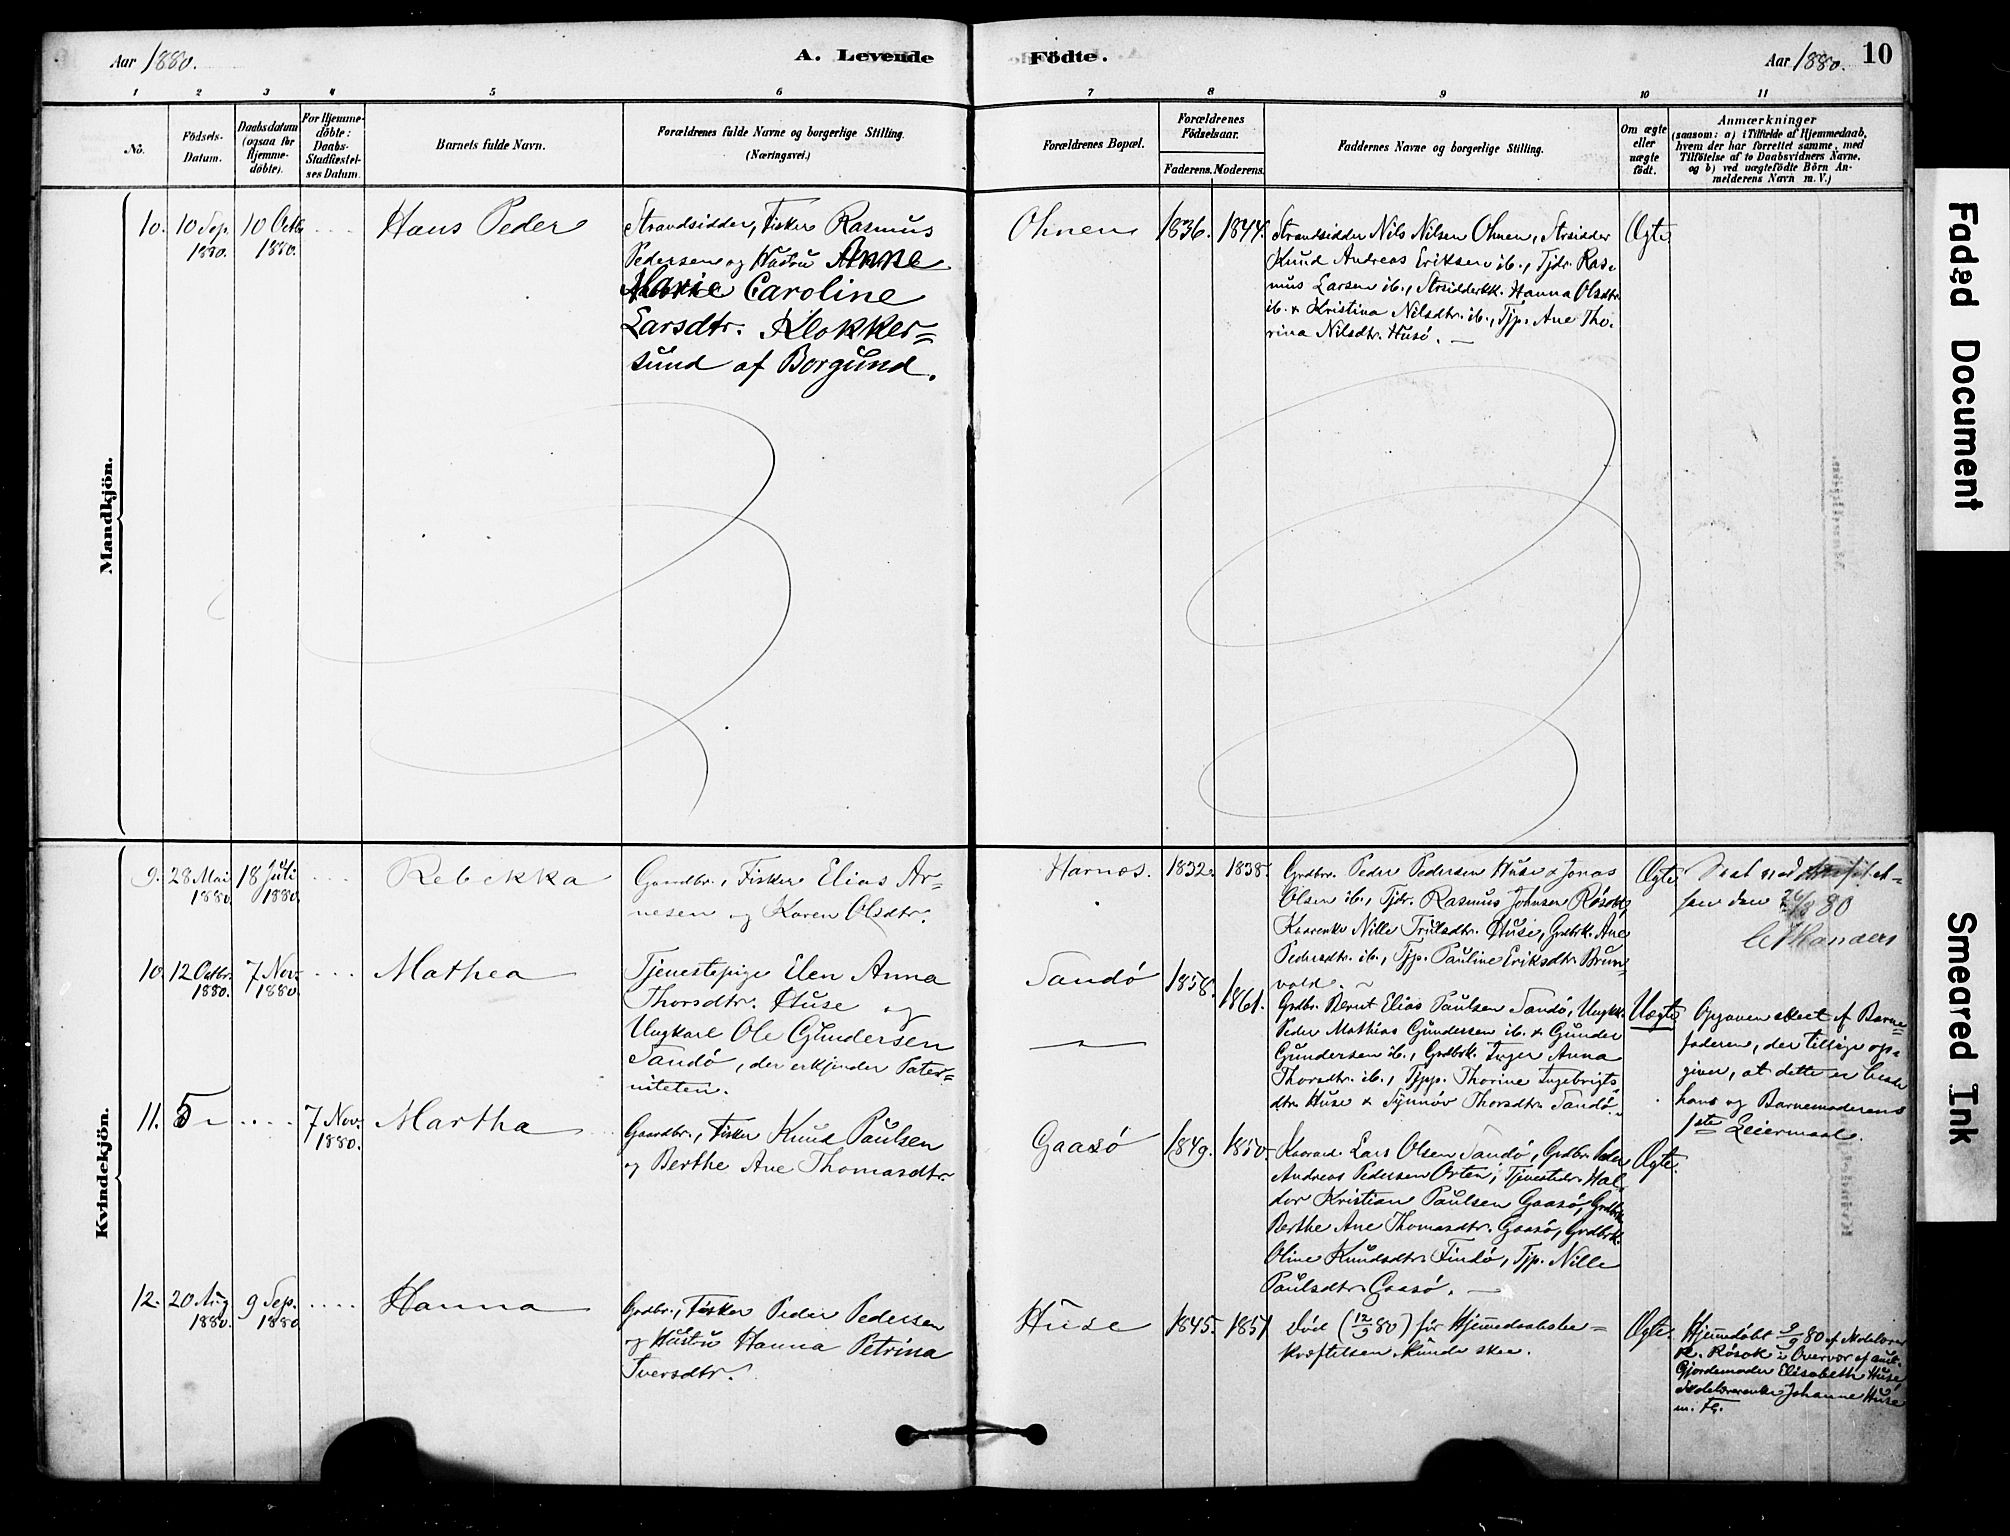 Aar 1880.
A. Levende
Födte.
Aar 1880.
10
1 2 3 4 5 6 7 8 9 10 11
No.
Födsels-
Datum.
Daabsdatum
(ogsaa for
Hjemme-
döbte).
For Hjemme-
döbte:
Daabs-
Stadfæstel-
ses Datum.
Barnets fulde Navn.
Forældrenes fulde Navne og borgerlige Stilling.
(Næringsvei.)
Forældrenes Bopæl.
Forældrenes
Födselsaar.
Faderens. Moderens.
Faddernes Navne og borgerlige Stilling.
Om ægte
eller
uægte
födt.
Anmærkninger
(saasom: a) i Tilfælde af Hjemmedaab,
hvem der har forrettet samme, med
Tilföielse af to Daabsvidners Navne,
og b) ved uægtefödte Börn An-
melderens Navn m. V.)
Mandkjön.
10.
10 Sep.
1880.
10 Octb.
1880.
Hans Peder
Strandsidder, Fisker Rasmus
Pedersen og Hustru Anne
Marie Caroline
Larsdtr. Klokker=
sund af Borgund.
Ohnen
1836.
1844.
Strandsidder Nils Nilsen Ohnen, Strsidder
Knud Andreas Eriksen ib., Tjdr. Ras-
mus Larsen ib., Strsidderk. Hanna Olsdtr.
ib. & Kristina Nilsdtr. ib., Tjp. Ane Tho-
rina Nilsdtr. Husö.
Ægte
Kvindekjön.
9.
28 Mai
1880.
18 Juli
1880.
Rebekka
Gaardbr., Fisker Elias Ar-
nesen og Karen Olsdtr.
Harnæs.
1832.
1838.
Grdbr. Peder Pedersen Huse & Jonas
Olsen ib., Tjdr. Rasmus Johnsen Rösok,
Kaarenke Nille Trulsdtr. Huse, Grdbrk. Ane
Pedersdtr. ib., Tjp. Pauline Eriksdtr. Brun-
vold.
Ægte
den 26/8 80
10.
12 Octbr.
1880.
7 Nov.
1880.
Mathea
Tjenestepige Elen Anna
Thorsdtr. Huse og
Ungkarl Ole Gundersen
Sandö, der erkjender Pater=
niteten.
Sandö
1858.
1861.
Grdbr. Bernt Elias Paulsen Sandö, Ungk.
Peder Mathias Gundersen ib. & Gunder
Gundersen ib., Grdbrk. Inger Anna
Thorsdtr. ib., Tjpp. Thorine Ingebrigts-
dtr. Huse & Synnöv Thorsdtr. Sandö.
Uægte
Opgaven skeet af Barne=
faderen, der tillige op-
giver, at dette er baade
hans og Barnemoderens
1ste Leiermaal.
11.
5
7 Nov.
1880.
Martha
Gaardbr., Fisker Knud Paulsen
og Berthe Ane Thomasdtr.
Gaasö
1849.
1850.
Kaarm. Lars Olsen Sandö, Grdbr. Peder
Andreas Pedersen Orten, Tjenestedr. Hal-
dor Kristian Paulsen Gaasö, Grdbrk.
Berthe Ane Thomasdtr. Gaasö, Grdbrk.
Oline Knudsdtr. Findö, Tjp. Nille
Paulsdtr. Gaasö.
Ægte.
12.
20 Aug.
1880.
9 Sep.
1880
Hanna
Grdbr., Fisker Peder Pedersen
og Hustru Hanna Petrina
Iversdtr.
Huse
1845.
1851
död (12/9 80) för Hjemmedaabsbe=
kræftelsen kunde skee.
Ægte.
Hjemmedöbt 9/9 80 af Skolelærer
R. Rösok i Overvær af
Gjordemoder Elisabeth Huse
Skolelærerenke Johanne Huse
m. Fl.
Faded Document
Smeared Ink